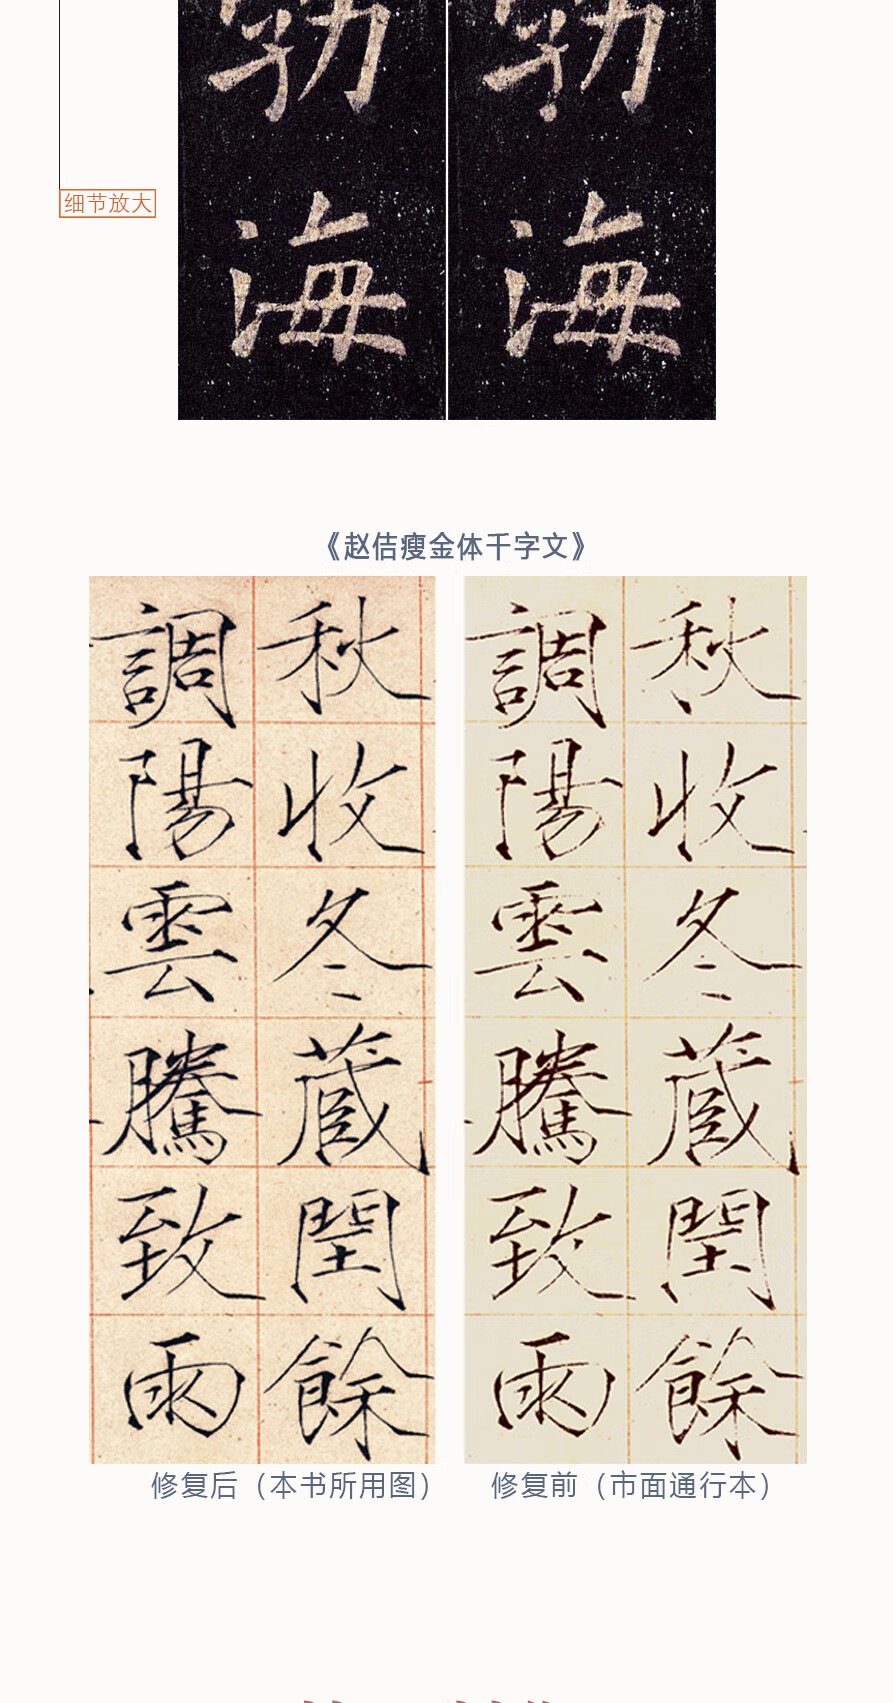 勃海
勃海
细节放大
《赵佶瘦金体千字文》
秋收冬藏閏餘
調陽雲騰致雨
秋收冬藏閏餘
調陽雲騰致雨
修复后（本书所用图）
修复前（市面通行本）